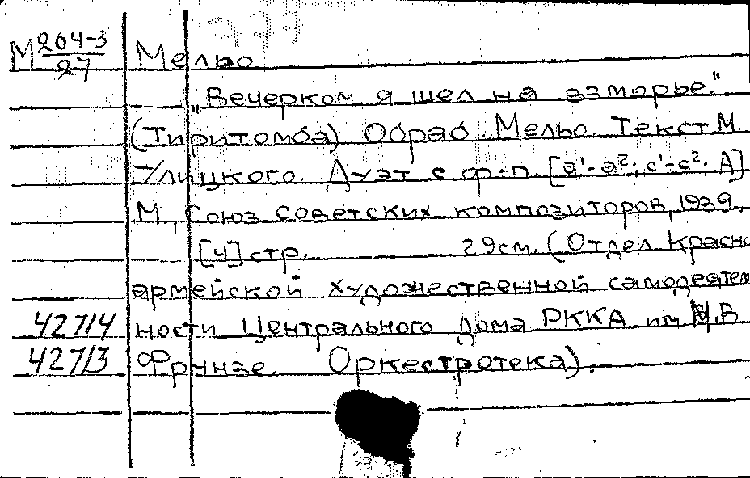 М 264-3/27 Мельо.
„Вечерком я шел на взморье."
(Тиритомба) Обраб. Мельо. Текст М.
Улицкого. Дуэт с ф-п. [a¹-a²; c¹-c². А]
М., Союз советских композиторов, 1939.
[4] стр. 29см. (Отдел Красно
армейской художественной самодеятель
42714 ности Центрального Дома РККА им. М.В.
42713 Фрунзе. Оркестротека).